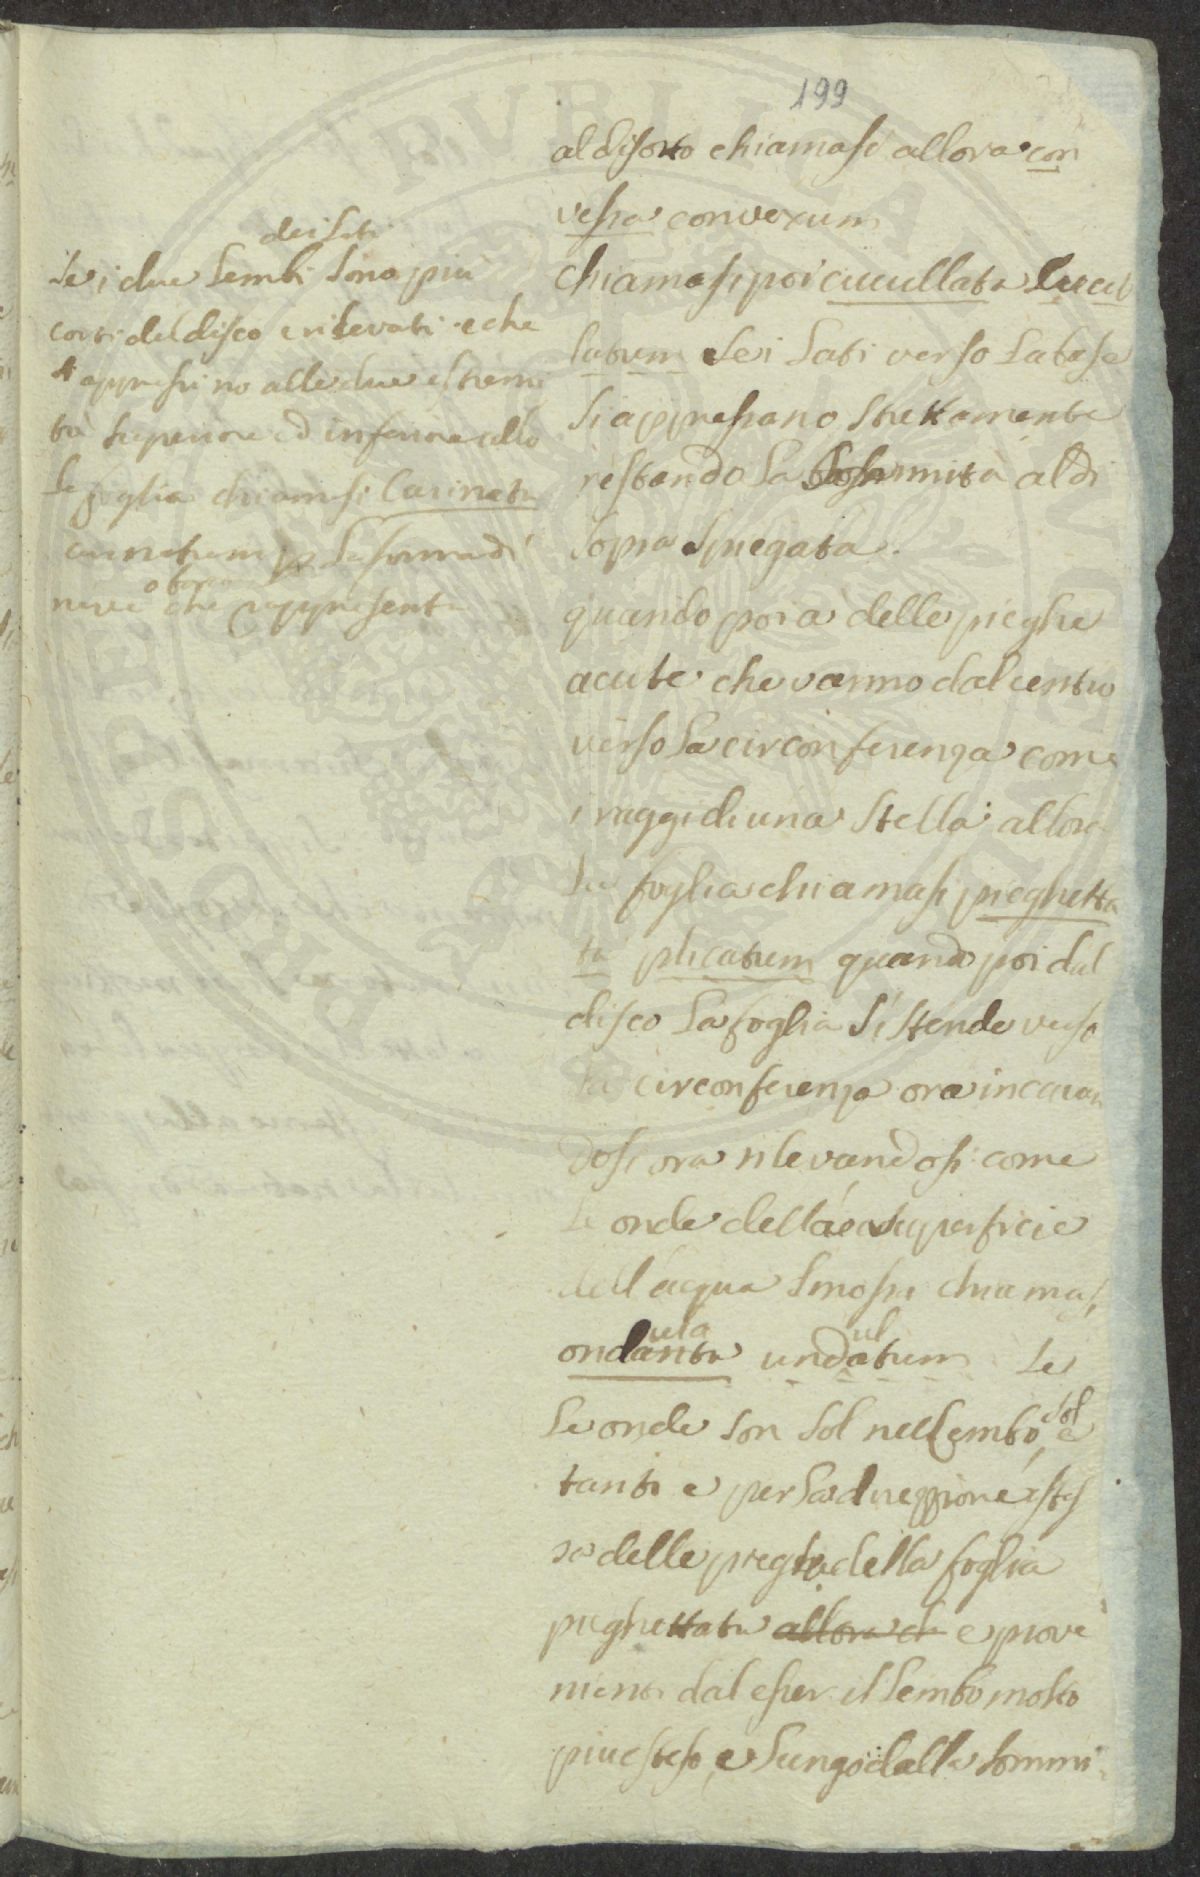 199
al disotto chiamasi allora con
vessa convexum
chiamasi poi cucullata cucul
latum se i lati verso la base
si appressano strettamente
restando la sommità al di
sopra spiegata.
quando poi a delle pieghe
acute che vanno dal centro
verso la circonferenza come
i raggi di una stella allora
la foglia chiamasi pieghetta
ta plicatum quando poi dal
disco la foglia si stende verso
la circonferenza ora incavan
dosi ora rilevandosi come
le onde della superficie
dell'acqua smossa chiamasi
ondulata undulatum se
le onde son sol nel lembo
tanti e per la direzzione istes
sa delle pieghe della foglia
pieghettata allora ch e prove
nienti dal esser il lembo molto
piu esteso, e lungo dalla sommi
dei lati
se i due lembi sono piu
corti del disco e rilevati e che
si appressino alle due estremi
tà superiore ed inferiore allo
la foglia chiamasi Carinata
carinatum per la forma di
nave o barca che rappresenta